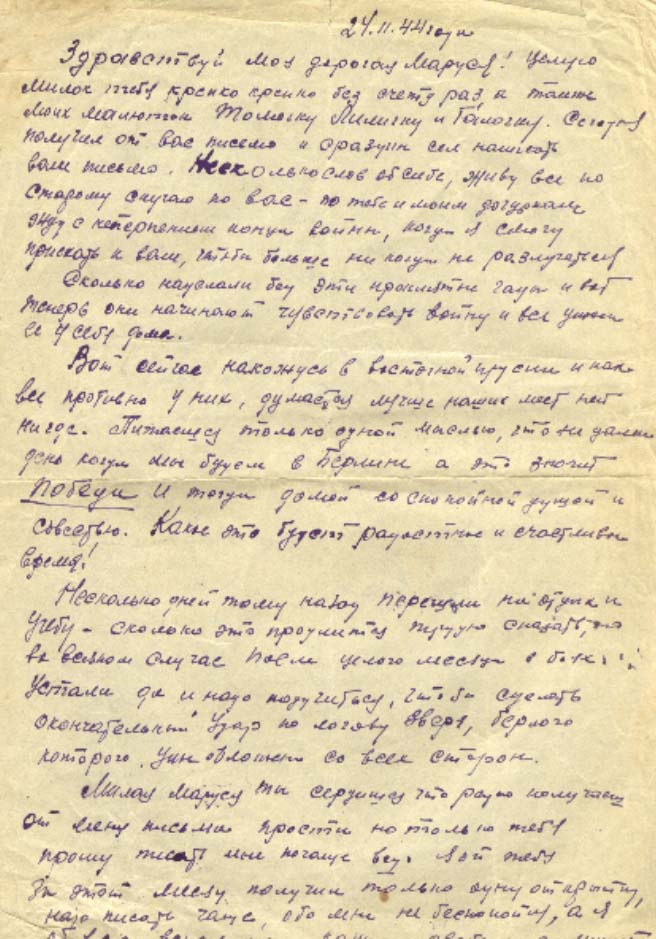 24.11.44 года
Здравствуй моя дорогая Маруся! Целую
милок тебя крепко крепко без счету раз, а также
моих малюток Томочку Лиличку и Галочку. Сегодня
получил от вас письмо и сразу сел написать
вам письмо. Несколько слов о себе, живу все по
старому скучаю по вас - по тебе и моим дочуркам
жду с нетерпением конца войны, когда я смогу
приехать к вам, чтобы больше ни когда не разлучаться
Сколько наделали бед эти проклятые гады и вот
теперь они начинают чувствовать войну и все
ее у себя дома.
Вот сейчас нахожусь в восточной прусии и как
все противно у них, думается лучше наших мест нет
нигде. Питаешся только одной мыслью, что не далек
день когда мы будем в Берлине а это значит
Победа и тогда домой со спокойной душой и
совестью. Какое это будет радостное и счастливое
время!
Несколько дней тому назад перешли на отдых и
учебу - сколько это продлится трудно сказать, но
во всяком случае после целого месяца в боях
устали да и надо подучиться, чтобы сделать
окончательный удар по логову зверя, берлога
которого уже обложена со всех сторон.
Милая Маруся ты сердишся что редко получаеш
от меня письма прости но только тебя
прошу писать мне почаще ведь я от тебя
за этот месяц получил только одну открытку,
надо писать чаще, обо мне не беспокойся, а я